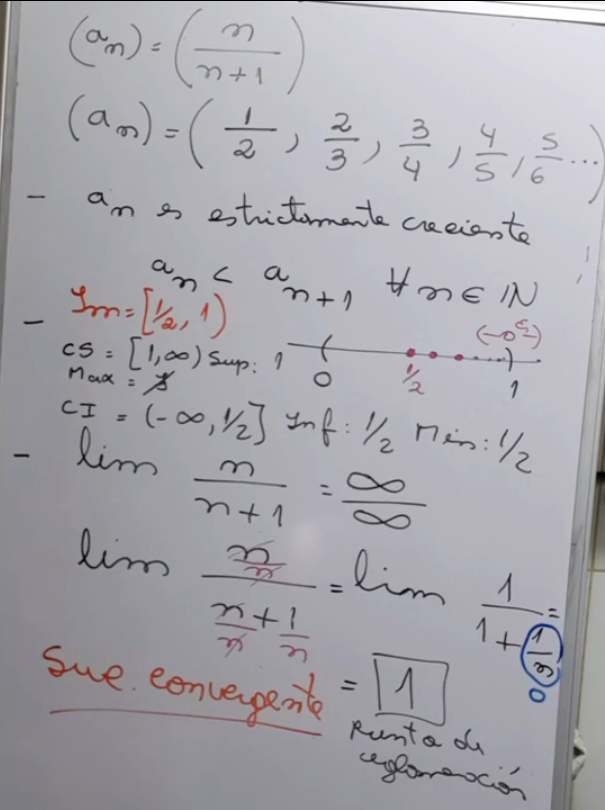 (aₙ) = (n/(n+1))
(aₙ) = (1/2, 2/3, 3/4, 4/5, 5/6 ...)
- aₙ es estrictamente creciente
aₙ < aₙ₊₁ ∀ n ∈ ℕ
- Im = [1/2, 1)
CS = [1,∞) Sup: 1
Max = ∄
0 1/2 1
CI = (-∞, 1/2] Inf: 1/2 Min: 1/2
- lim n/(n+1) = ∞/∞
lim (n/n)/(n/n + 1/n) = lim 1/(1 + 1/n) =
0
Suc. convergente = 1
Punto de
aglomeración